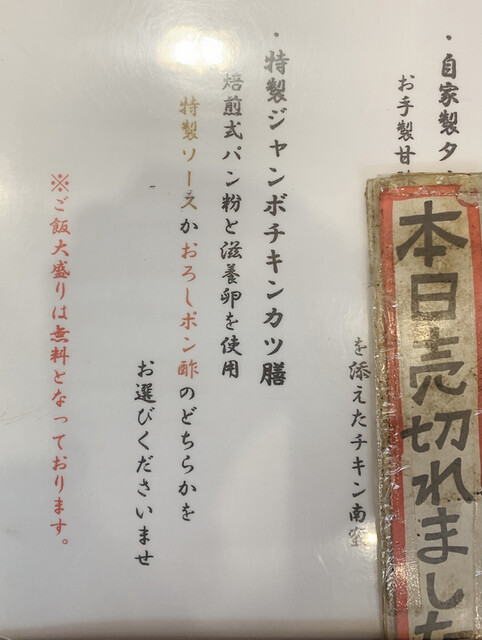 ・自家製タ
お手製甘
を添えたチキン南蛮
本日売切れました
・特製ジャンボチキンカツ膳
焙煎式パン粉と滋養卵を使用
特製ソースかおろしポン酢のどちらかを
お選びくださいませ
※ご飯大盛りは無料となっております。